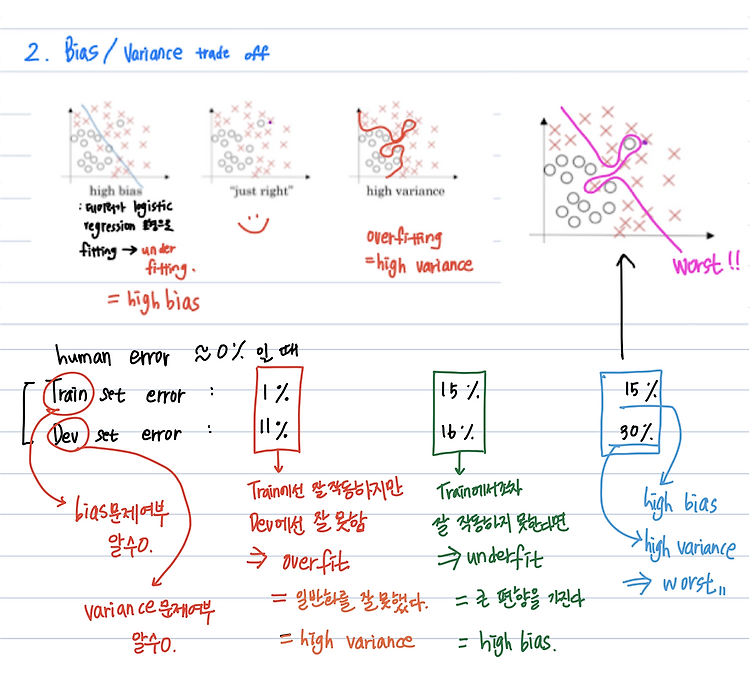 2. Bias/Variance trade off
high bias
"just right"
high variance
: 데이터가 logistic
regression 모형으로
fitting → under
fitting.
= high bias
overfitting
= high variance
worst!!
human error ≈0% 일 때
Train set error : 1% 15% 15%
Dev set error : 11% 16% 30%
bias문제여부
알수O.
variance문제여부
알수O.
Train에선 잘 작동하지만
Dev에선 잘 못함
⇒ overfit
= 일반화를 잘 못했다.
= high variance
Train에서조차
잘 작동하지 못한다면
⇒ underfit
= 큰 편향을 가진다
= high bias.
high bias
high variance
⇒ worst..